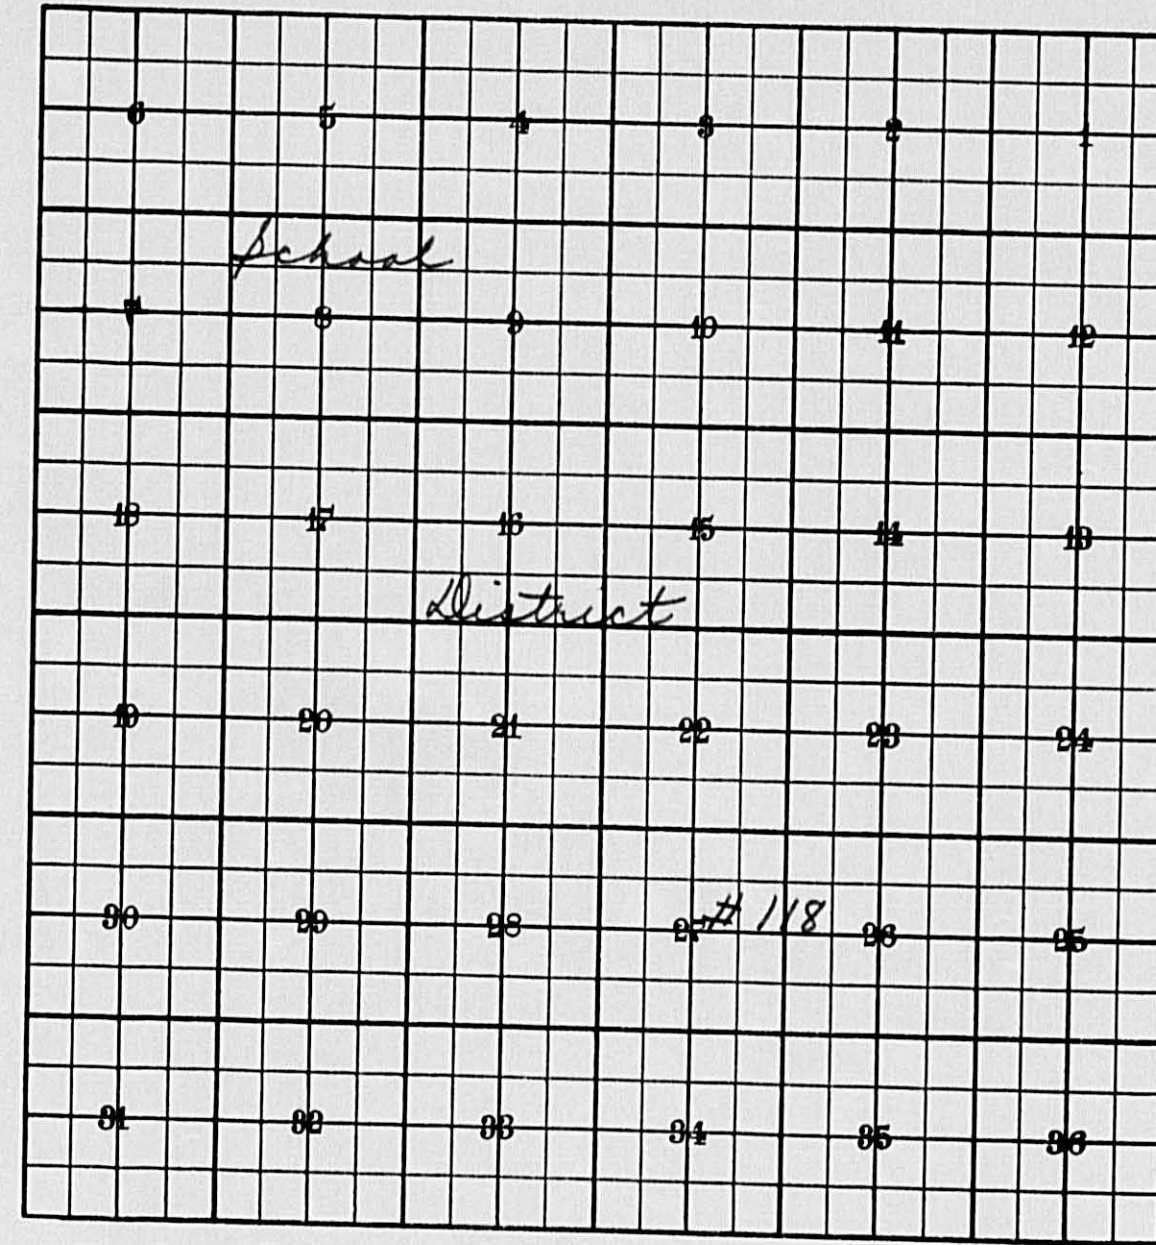 6 5 4 3 2 1
School
7 8 9 10 11 12
18 17 16 15 14 13
District
19 20 21 22 23 24
# 118
30 29 28 27 26 25
31 32 33 34 35 36